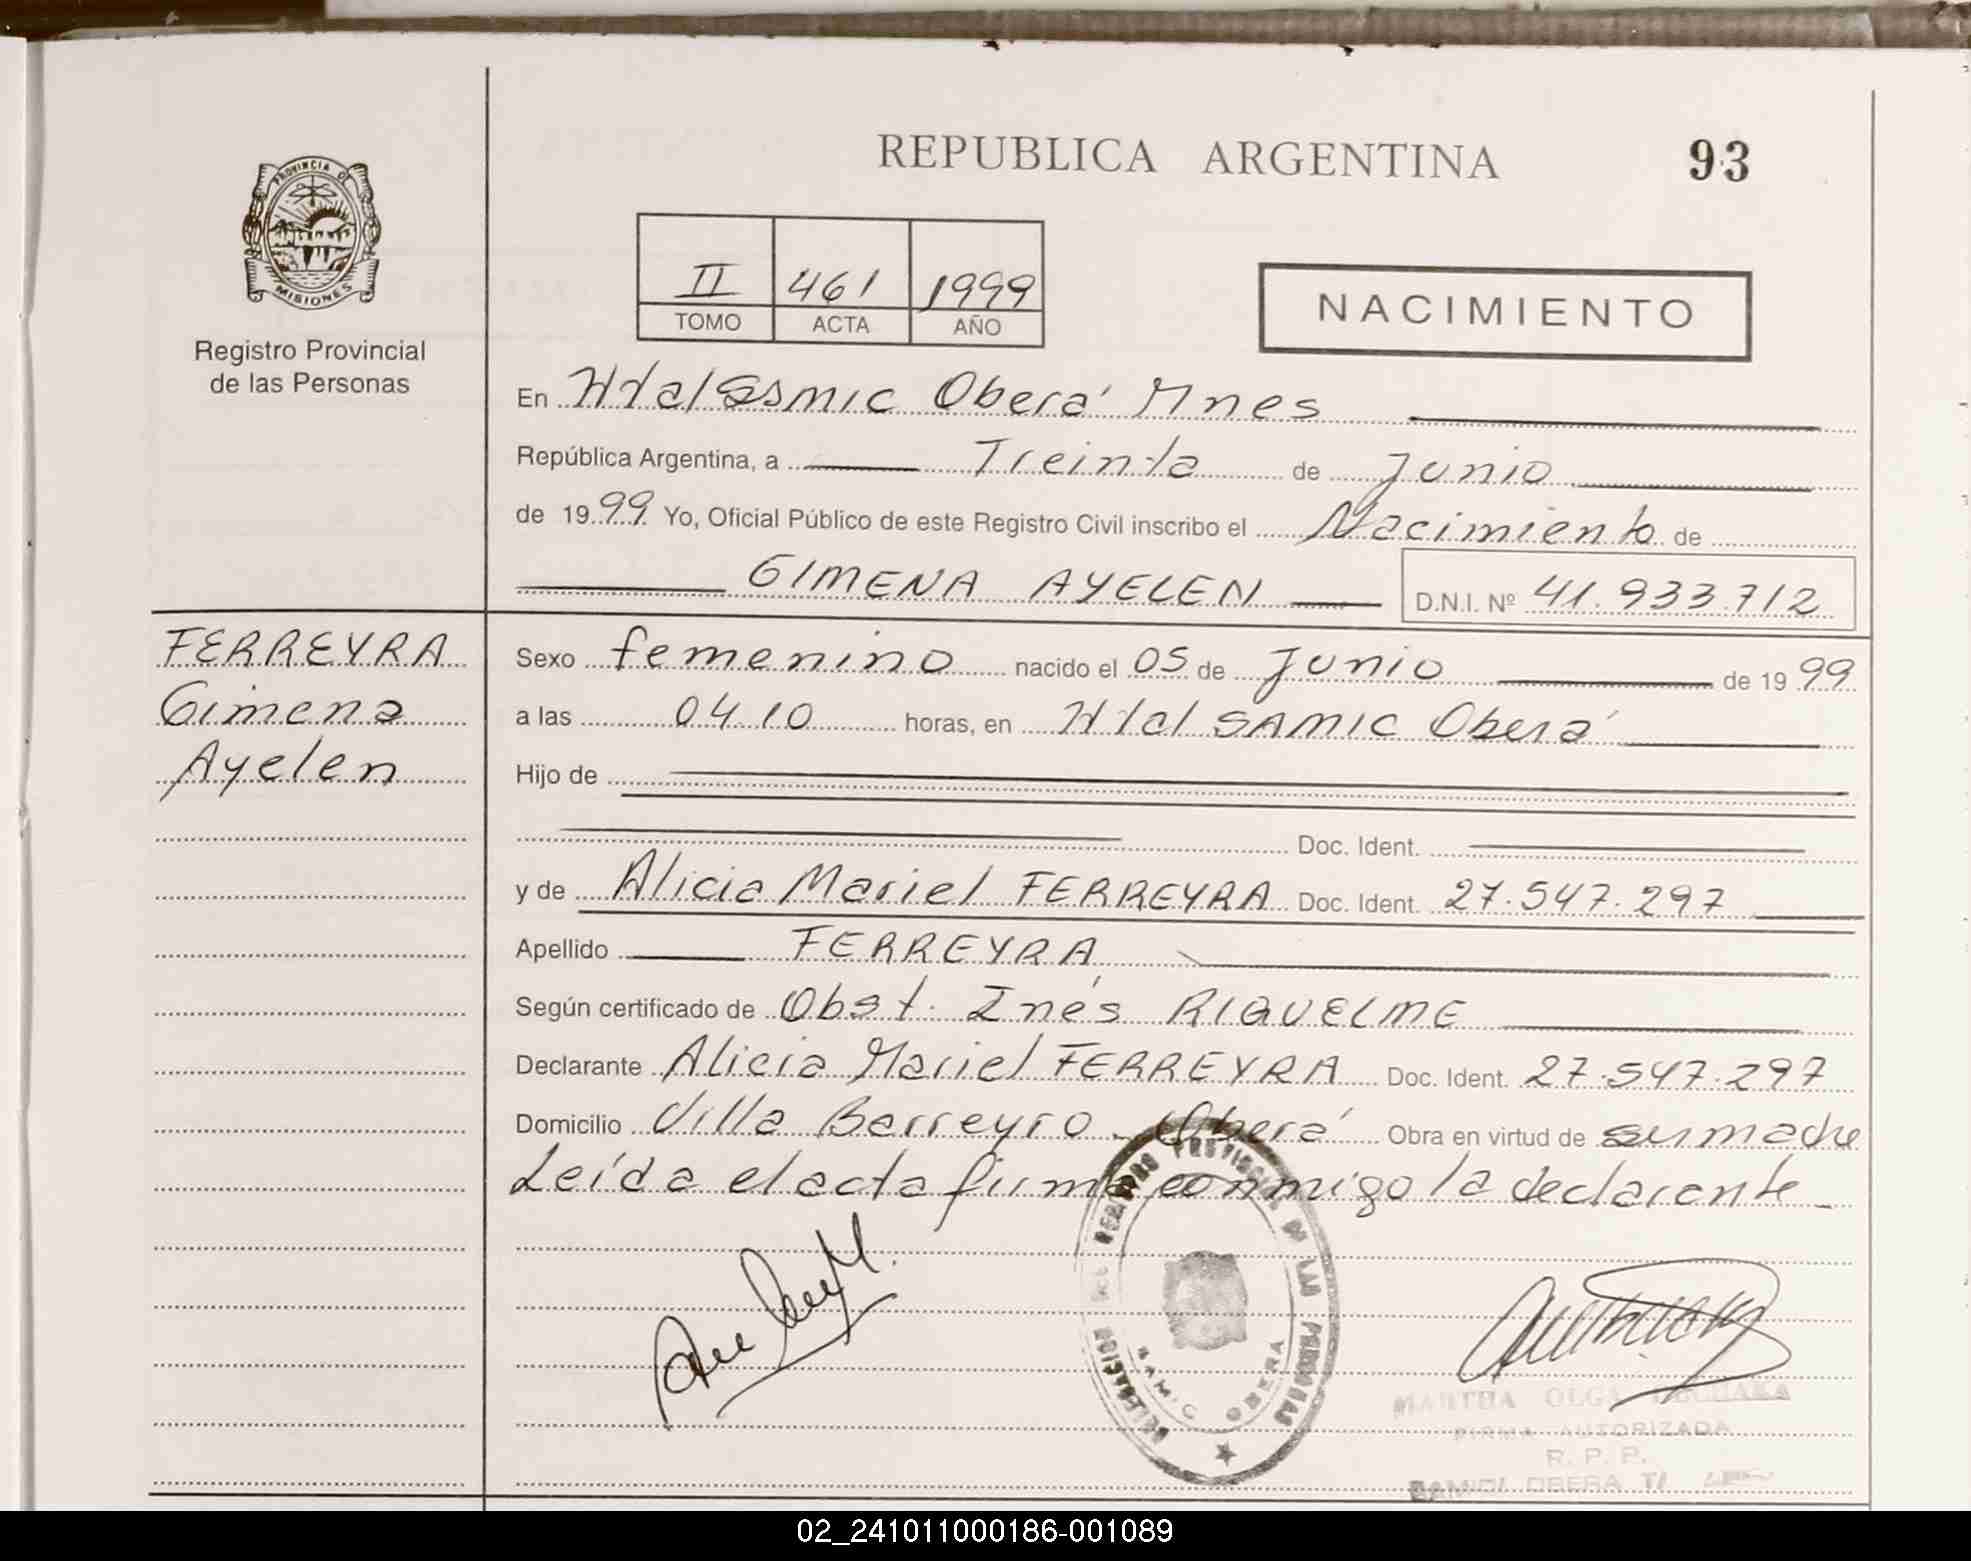 REPUBLICA ARGENTINA
93
PROVINCIA D
MISIONES
Registro Provincial
de las Personas
II 461 1999
TOMO ACTA AÑO
NACIMIENTO
En Htal Samic Oberá Mnes
República Argentina, a Treinta de Junio
de 1999 Yo, Oficial Público de este Registro Civil inscribo el Nacimiento de
GIMENA AYELEN D.N.I. Nº 41.933.712
FERREYRA
Gimena
Ayelen
Sexo femenino nacido el 05 de Junio de 1999
a las 04.10 horas, en Htal SAMIC Oberá
Hijo de
Doc. Ident.
y de Alicia Mariel FERREYRA Doc. Ident. 27.547.297
Apellido FERREYRA
Según certificado de Obst. Inés RIQUELME
Declarante Alicia Mariel FERREYRA Doc. Ident. 27.547.297
Domicilio Villa Barreyro - Oberá Obra en virtud de ser madre
Leída el acta firma conmigo la declarante
REGISTRO PROVINCIAL DE LAS PERSONAS
SAMIC OBERA
MARTHA OLGA
FIRMA AUTORIZADA
R. P. P.
SAMIC OBERA
02_241011000186-001089